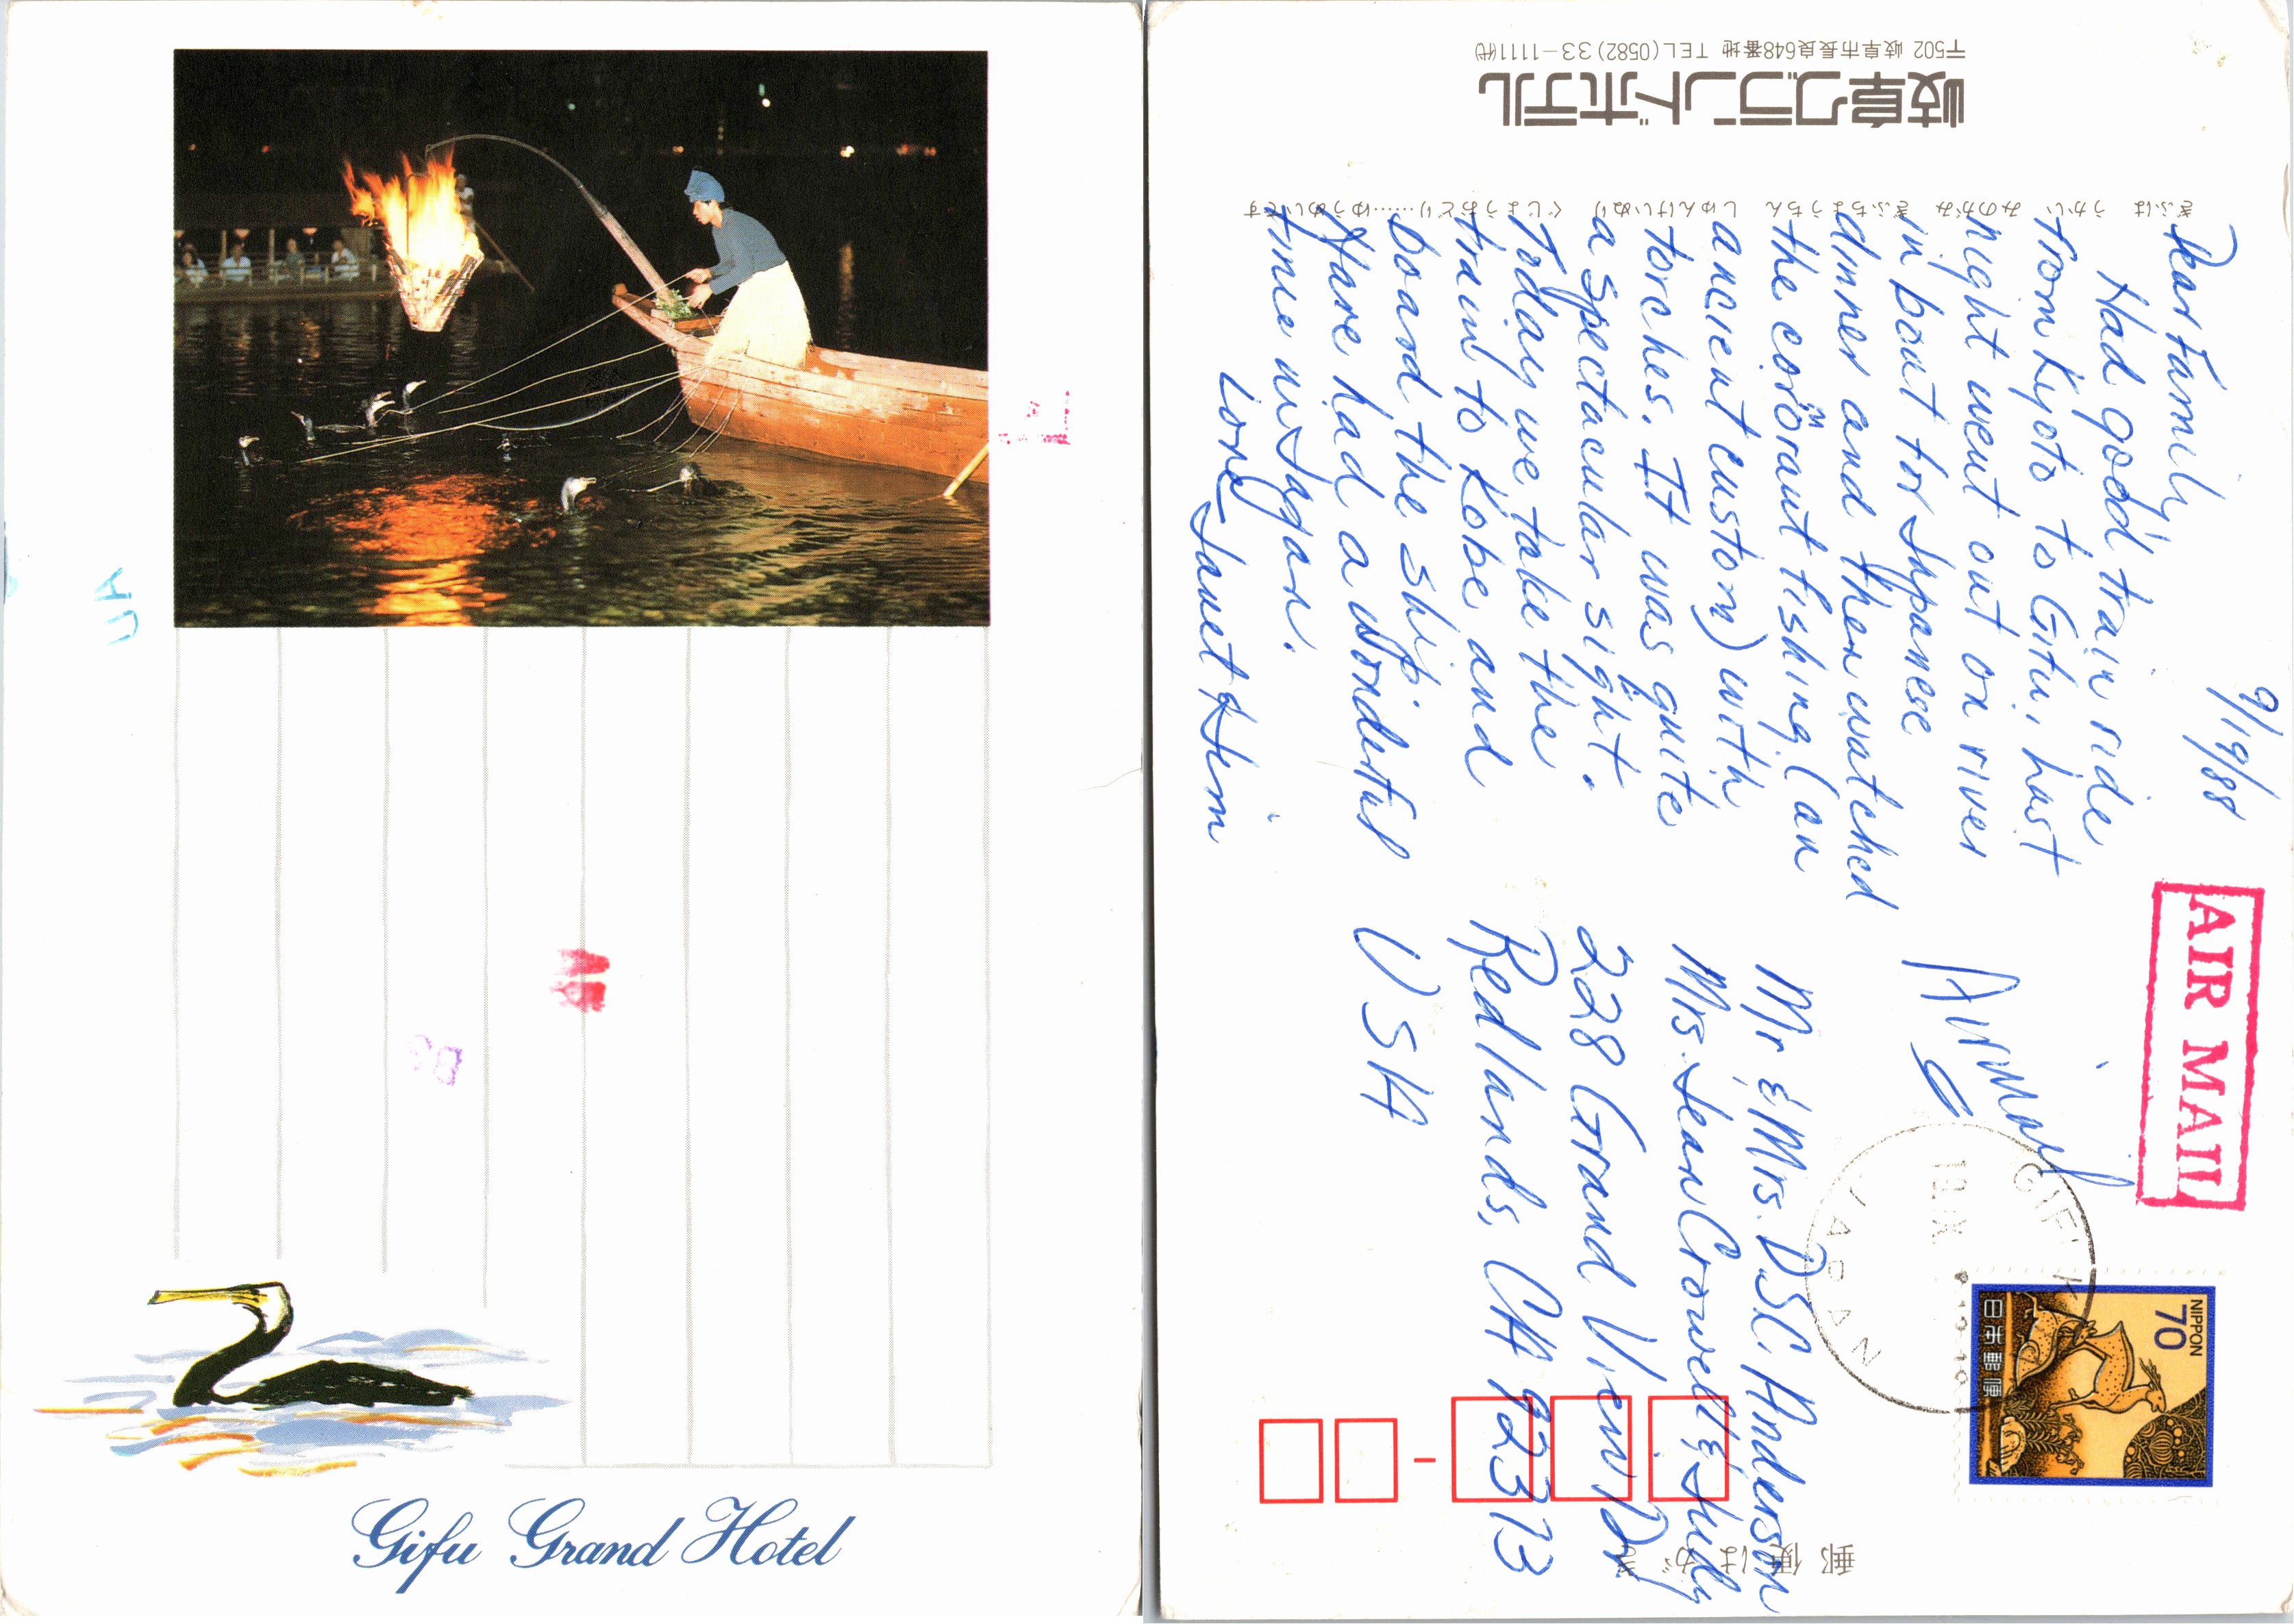 Gifu Grand Hotel
UA
〒502 岐阜市長良648番地 TEL(0582)33-1111(代)
岐阜グランドホテル
ぎふは うかい みのがみ ぎふちょうちん しゅんけいぬり ぐじょうおどり……ゆうめいです
9/19/88
Dear Family,
Had good train ride
from Kyoto to Gifu, hast
night went out on river
in boat for Japanese
dinner and then watched
the cormorant fishing (an
ancient custom) with
torches. It was quite
a spectacular sight.
Today we take the
train to Kobe and
board the ship.
Have had a wonderful
time in Japan.
Love,
Janet & Jem
AIR MAIL
Airmail
GIFU
19.IX
JAPAN
NIPPON
70
日本郵便
Mr & Mrs. D.S.C. Anderson
Mrs. Jean Crowell & Judy
228 Grand View Dr.
Redlands, CA 92373
USA
郵便はがき